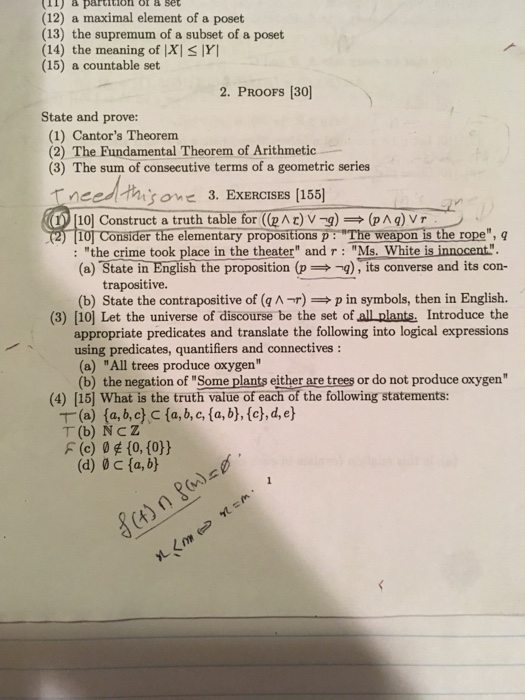 (11) a partition of a set
(12) a maximal element of a poset
(13) the supremum of a subset of a poset
(14) the meaning of |X| ≤ |Y|
(15) a countable set
2. PROOFS [30]
State and prove:
(1) Cantor's Theorem
(2) The Fundamental Theorem of Arithmetic
(3) The sum of consecutive terms of a geometric series
I need this one 3. EXERCISES [155]
(1) [10] Construct a truth table for ((p ∧ r) ∨ ¬q) ⟹ (p ∧ q) ∨ r
(2) [10] Consider the elementary propositions p : "The weapon is the rope", q
: "the crime took place in the theater" and r : "Ms. White is innocent".
(a) State in English the proposition (p ⟹ ¬q), its converse and its con-
trapositive.
(b) State the contrapositive of (q ∧ ¬r) ⟹ p in symbols, then in English.
(3) [10] Let the universe of discourse be the set of all plants. Introduce the
appropriate predicates and translate the following into logical expressions
using predicates, quantifiers and connectives :
(a) "All trees produce oxygen"
(b) the negation of "Some plants either are trees or do not produce oxygen"
(4) [15] What is the truth value of each of the following statements:
T (a) {a, b, c} ⊂ {a, b, c, {a, b}, {c}, d, e}
T (b) ℕ ⊂ ℤ
F (c) ∅ ∉ {0, {0}}
(d) ∅ ⊂ {a, b}
1